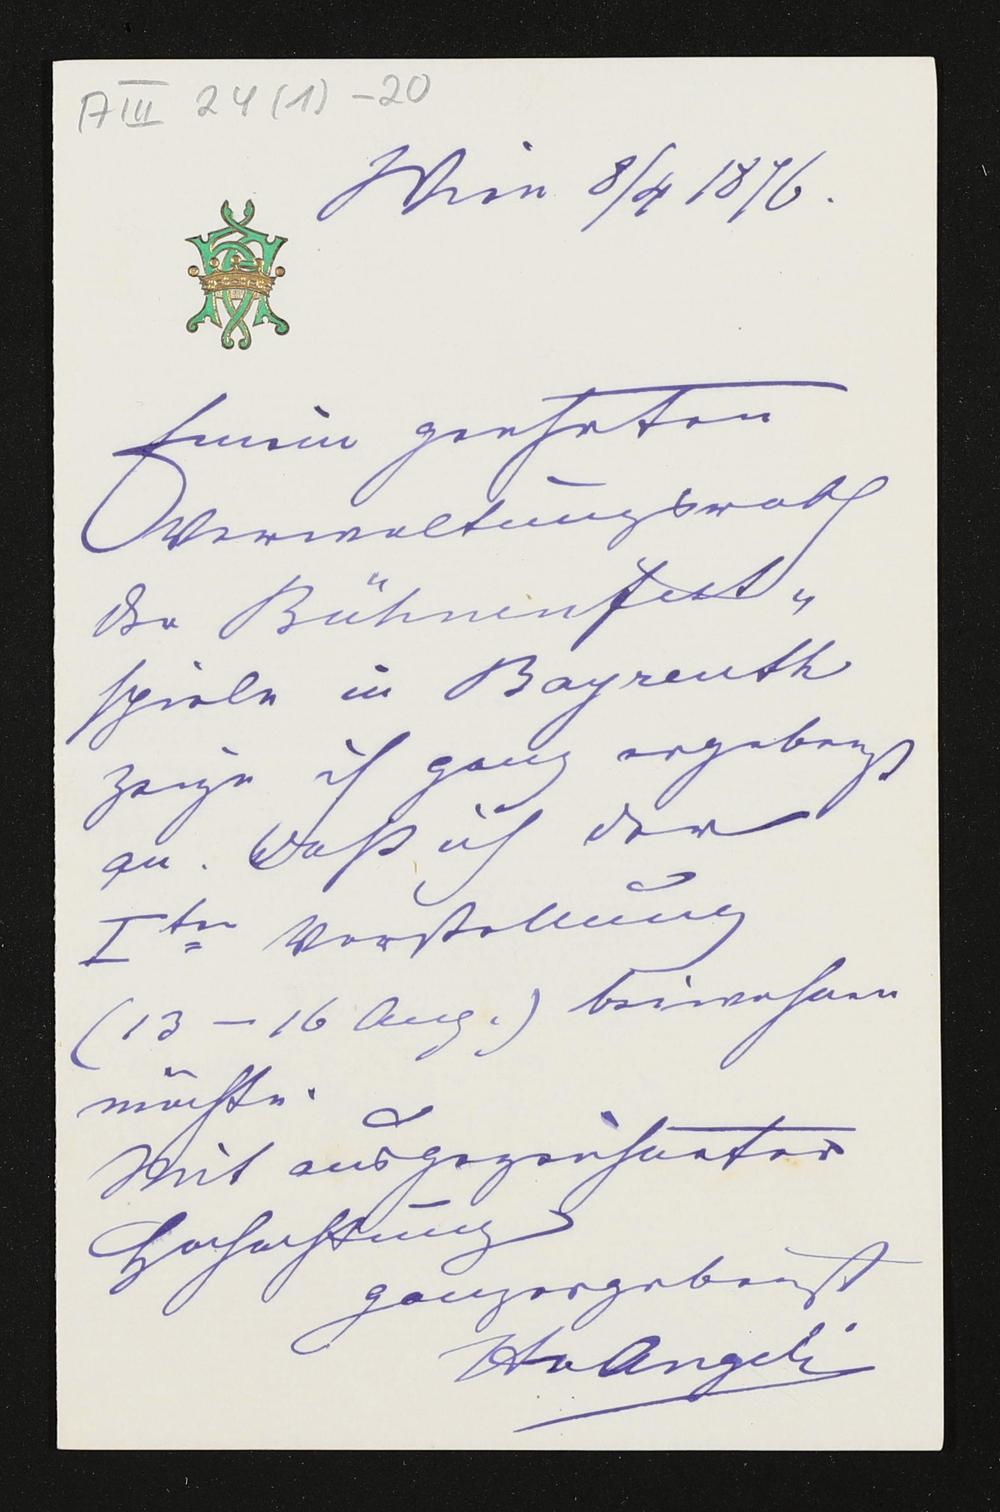 A III 24 (1) - 20
Wien 8/4 1876.
Einem geehrten
Verwaltungsrath
der Bühnenfest„
spiele in Bayreuth
zeige ich ganz ergebenst
an. Daß ich der
Iten Vorstellung
(13 – 16 Aug.) beiwohnen
möchte.
Mit ausgezeichneter
Hochachtung
ganzergebenst
HvAngeli